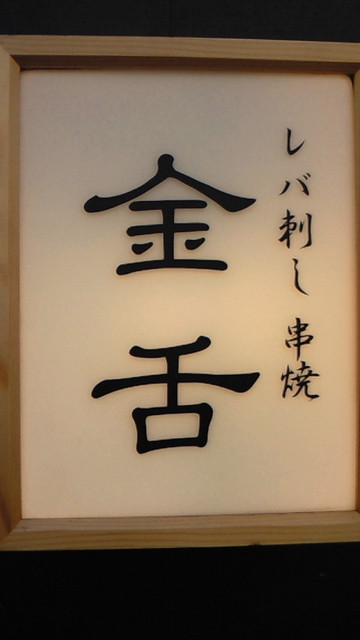 レバ刺し 串焼
金舌